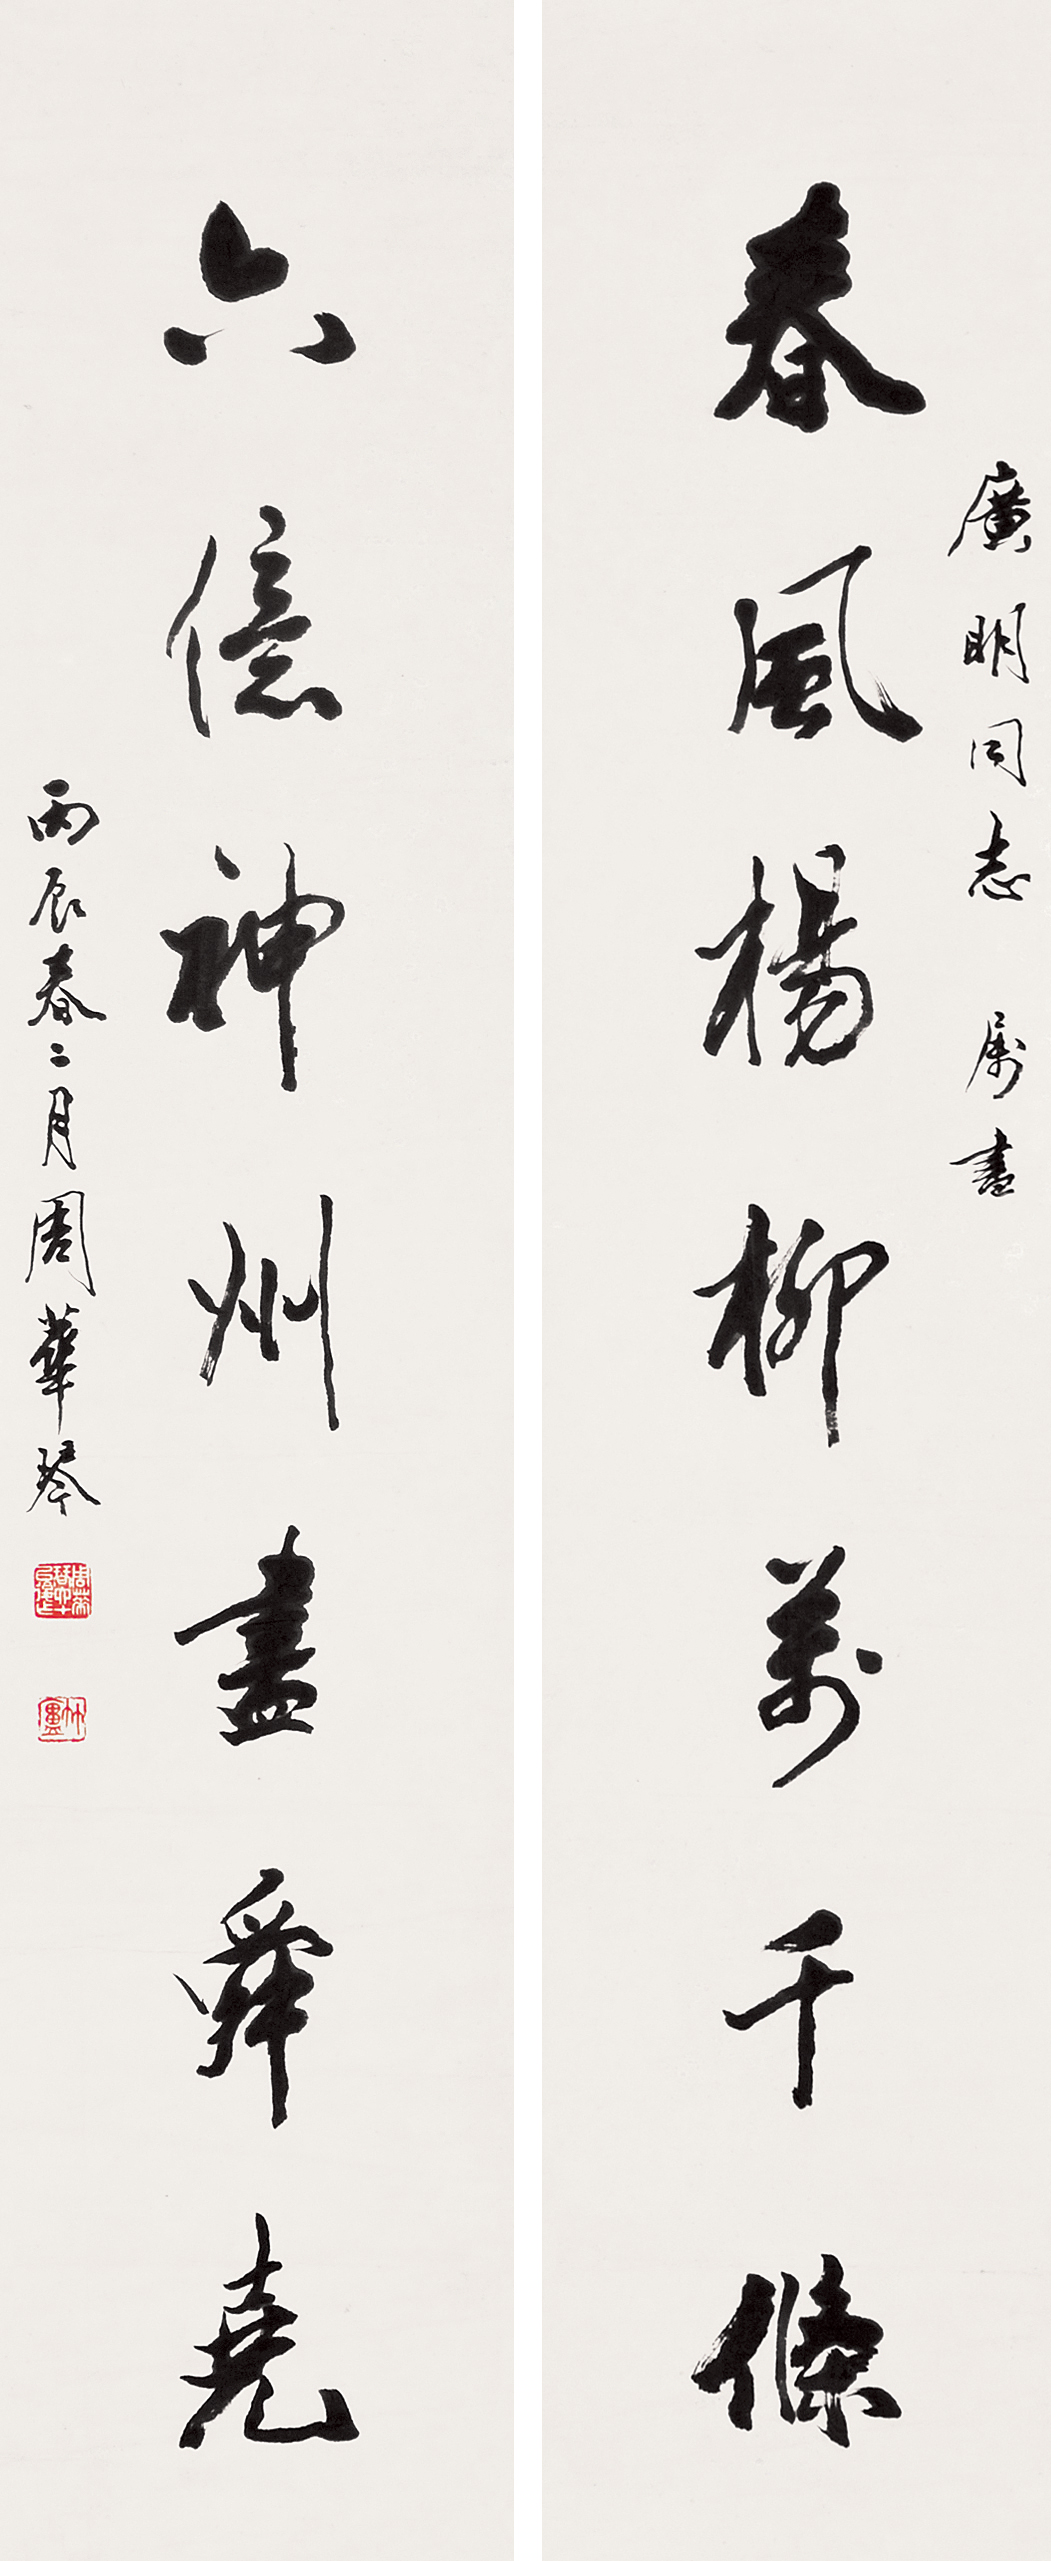 廣明同志 属書
春風楊柳萬千條
六億神州盡舜堯
丙辰春二月周華琴